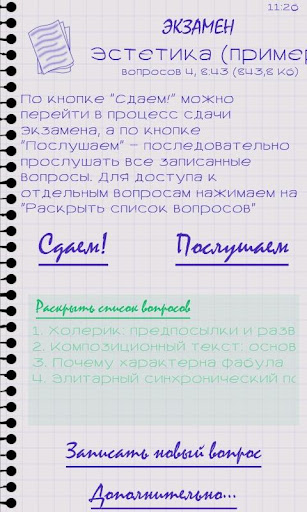 11:20
ЭКЗАМЕН
Эстетика (пример
вопросов 4, 8:43 (843,8 Кб)
По кнопке "Сдаем!" можно
перейти в процесс сдачи
экзамена, а по кнопке
"Послушаем" - последовательно
прослушать все записанные
вопросы. Для доступа к
отдельным вопросам нажимаем на
"Раскрыть список вопросов"
Сдаем! Послушаем
Раскрыть список вопросов
1. Холерик: предпосылки и разв
2. Композиционный текст: основ
3. Почему характерна фабула
4. Элитарный синхронический по
Записать новый вопрос
Дополнительно...